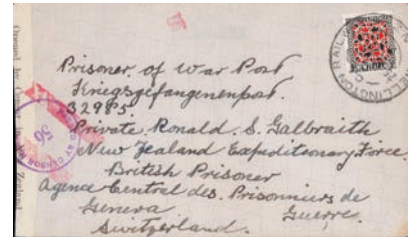 Prisoner of War Post
Kriegsgefangenenpost.
32985
Private Ronald. S. Galbraith
New Zealand Expeditionary Force.
British Prisoner
Agence Central des. Prisonniers de
Geneva Guerre.
Switzerland.
WELLINGTON RAIL
BY CENSOR
56
Opened by Censor
Zealand